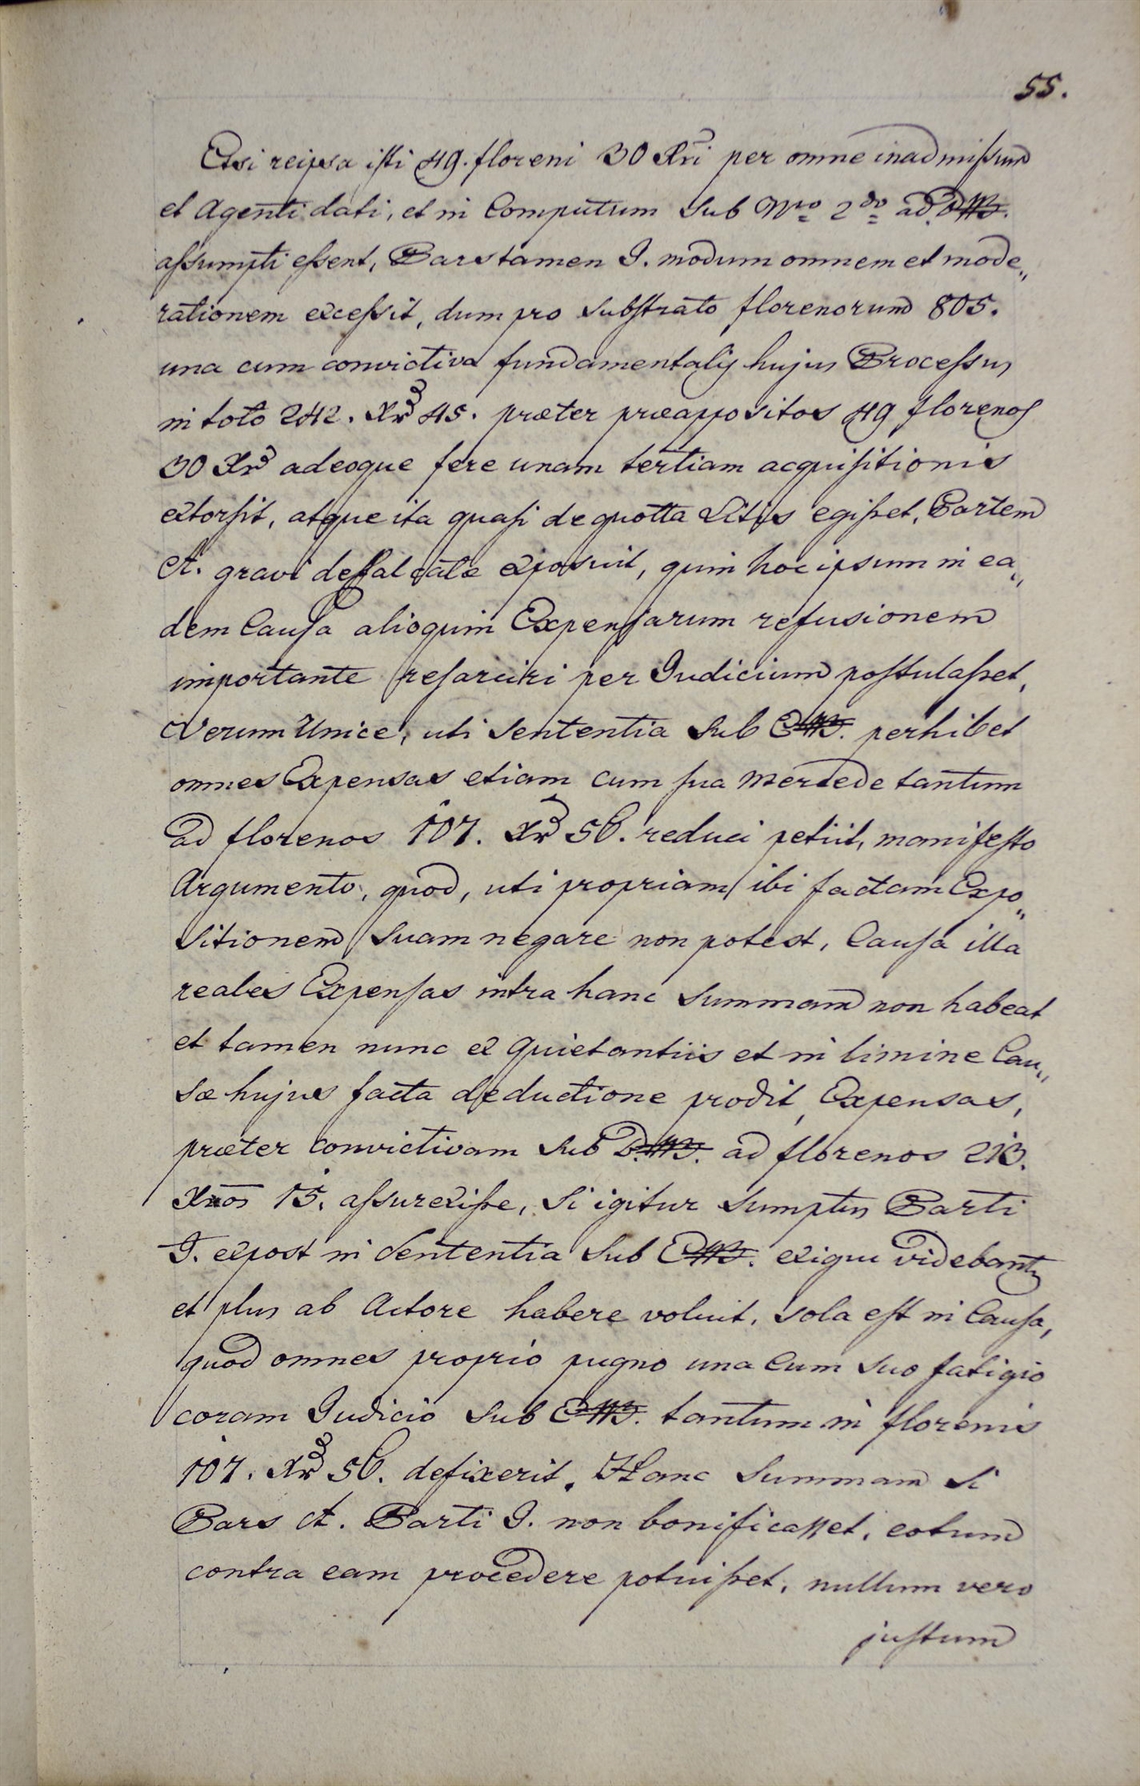 55.
Etsi reipsa isti 49. floreni 30 Xri per omne inadmissum
et Agenti dati, et in Computum sub Nro 2do ad
assumpti essent, Pars tamen I. modum omnem et mode„
rationem excessit, dum pro substrato florenorum 805.
una cum convictiva fundamentalis hujus Processus
in toto 242. Xr 45. præter præappositos 49 florenos
30 Xr adeoque fere unam tertiam acquisitionis
extorsit, atque ita quasi de quotta Litis egisset, Partem
A. gravi deffalcatæ exposuit, quin hoc ipsum in ea„
dem Causa alioquin Expensarum refusionem
importante resarciri per Judicium postulasset,
Verum Unice, uti Sententia sub perhibet
omnes Expensas etiam cum sua mercede tantum
ad florenos 107. Xr 56. reduci petiit, manifesto
Argumento, quod, uti propriam ibi factam Expo„
sitionem suam negare non potest, Causa illa
reales Expensas intra hanc Summam non habeat
et tamen nunc ex Quietantiis et in limine Cau„
sæ hujus facta deductione prodit, Expensas,
præter convictivam sub D. ad florenos 213.
Xros 15. assurexisse, Si igitur sumptus Parti
I. expost in Sententia sub exigui videbantur
et plus ab Actore habere voluit, sola est in Causa,
quod omnes proprio pugno una cum suo fatigio
coram Judicio sub tantum in florenis
107. Xr 56. defixerit. Hanc Summam si
Pars A. Parti I. non bonificasset, eotum
contra eam procedere potuisset, nullum vero
justum